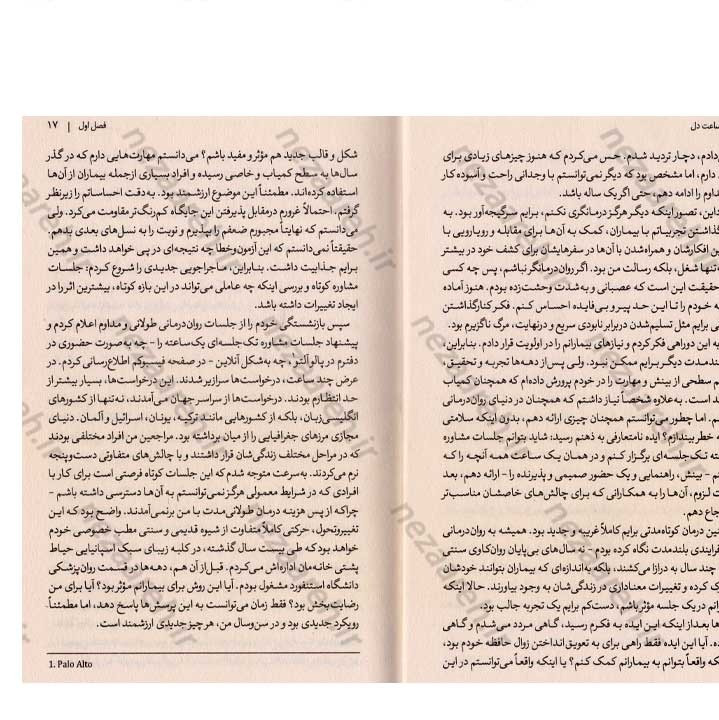 ساعت دل
دادم، دچار تردید شدم. حس می‌کردم که هنوز چیزهای زیادی برای
دارم، اما مشخص بود که دیگر نمی‌توانستم با وجدانی راحت و آسوده کار
داوم را ادامه دهم، حتی اگر یک ساله باشد.
داین، تصور اینکه دیگر هرگز درمانگری نکنم، برایم سرگیجه‌آور بود. به
گذاشتن تجربیاتم با بیماران، کمک به آن‌ها برای مقابله و رویارویی با
ین افکارشان و همراه‌شدن با آن‌ها در سفرهایشان برای کشف خود در بیشتر
تنها شغل، بلکه رسالت من بود. اگر روان‌درمانگر نباشم، پس چه کسی
حقیقت این است که عصبانی و به‌شدت وحشت‌زده بودم. هنوز آماده
ه خودم را تا این حد پیر و بی‌فایده احساس کنم. فکر کنار گذاشتن
ی برایم مثل تسلیم‌شدن دربرابر نابودی سریع و درنهایت، مرگ ناگزیرم بود.
به این دوراهی فکر کردم و نیازهای بیمارانم را در اولویت قرار دادم. بنابراین،
ندمدت دیگر برایم ممکن نبود. ولی پس از دهه‌ها تجربه و تحقیق،
م سطحی از بینش و مهارت را در خودم پرورش داده‌ام که همچنان کمیاب
د است. به‌علاوه شخصاً نیاز داشتم که همچنان در دنیای روان‌درمانی
م. اما چطور می‌توانستم همچنان چیزی ارائه دهم، بدون اینکه سلامتی
ه خطر بیندازم؟ ایده نامتعارفی به ذهنم رسید: شاید بتوانم جلسات مشاوره
ته تک‌جلسه‌ای برگزار کنم و در همان یک ساعت همه آنچه را که
نم - بینش، راهنمایی و یک حضور صمیمی و پذیرنده را - ارائه دهم، بعد
ت لزوم، آن‌ها را به همکارانی که برای چالش‌های خاصشان مناسب‌تر
جاع دهم.
نین درمان کوتاه‌مدتی برایم کاملاً غریبه و جدید بود. همیشه به روان‌درمانی
رایندی بلندمدت نگاه کرده بودم - نه سال‌های بی‌پایان روان‌کاوی سنتی
چند سال به درازا می‌کشند، بلکه به‌اندازه‌ای که بیماران بتوانند خودشان
ک کرده و تغییرات معناداری در زندگی‌شان به وجود بیاورند. حالا اینکه
رانم در یک جلسه مؤثر باشم، دست‌کم برایم یک تجربه جالب بود.
ها بعد از اینکه این ایده به فکرم رسید، گاهی مردد می‌شدم و گاهی
ده. آیا این ایده فقط راهی برای به تعویق‌انداختن زوال حافظه خودم بود،
که واقعاً بتوانم به بیمارانم کمک کنم؟ یا اینکه واقعاً می‌توانستم در این
فصل اول | ۱۷
شکل و قالب جدید هم مؤثر و مفید باشم؟ می‌دانستم مهارت‌هایی دارم که در گذر
سال‌ها به سطح کمیاب و خاصی رسیده و افراد بسیاری ازجمله بیماران از آن‌ها
استفاده کرده‌اند. مطمئناً این موضوع ارزشمند بود. به‌دقت احساساتم را زیرنظر
گرفتم. احتمالاً غرورم درمقابل پذیرفتن این جایگاه کم‌رنگ‌تر مقاومت می‌کرد. ولی
می‌دانستم که نهایتاً مجبورم ضعفم را بپذیرم و نوبت را به نسل‌های بعدی بدهم.
حقیقتاً نمی‌دانستم که این آزمون‌وخطا چه نتیجه‌ای در پی خواهد داشت و همین
برایم جذابیت داشت. بنابراین، ماجراجویی جدیدی را شروع کردم: جلسات
مشاوره کوتاه و بررسی اینکه چه عاملی می‌تواند در این بازه کوتاه، بیشترین اثر را در
ایجاد تغییرات داشته باشد.
سپس بازنشستگی خودم را از جلسات روان‌درمانی طولانی و مداوم اعلام کردم و
پیشنهاد جلسات مشاوره تک‌جلسه‌ای یک‌ساعته را - چه به‌صورت حضوری در
دفترم در پالو آلتو¹، چه به‌شکل آنلاین - در صفحه فیسبوکم اطلاع‌رسانی کردم. در
عرض چند ساعت، درخواست‌ها سرازیر شدند. این درخواست‌ها، بسیار بیشتر از
حد انتظارم بودند. درخواست‌ها از سراسر جهان می‌آمدند، نه‌تنها از کشورهای
انگلیسی‌زبان، بلکه از کشورهایی مانند ترکیه، یونان، اسرائیل و آلمان. دنیای
مجازی مرزهای جغرافیایی را از میان برداشته بود. مراجعین من افراد مختلفی بودند
که در مراحل مختلف زندگی‌شان قرار داشتند و با چالش‌های متفاوتی دست‌وپنجه
نرم می‌کردند. به‌سرعت متوجه شدم که این جلسات کوتاه فرصتی است برای کار با
افرادی که در شرایط معمولی هرگز نمی‌توانستم به آن‌ها دسترسی داشته باشم -
چراکه از پس هزینه درمان طولانی‌مدت با من برنمی‌آمدند. واضح بود که این
تغییروتحول، حرکتی کاملاً متفاوت از شیوه قدیمی و سنتی مطب خصوصی خودم
خواهد بود که طی بیست سال گذشته، در کلبه زیبای سبک اسپانیایی حیاط
پشتی خانه‌مان اداره‌اش می‌کردم. قبل از آن هم، دهه‌ها در قسمت روان‌پزشکی
دانشگاه استنفورد مشغول بودم. آیا این روش برای بیمارانم مؤثر بود؟ آیا برای من
رضایت‌بخش بود؟ فقط زمان می‌توانست به این پرسش‌ها پاسخ دهد، اما مطمئناً
رویکرد جدیدی بود و در سن‌وسال من، هر چیز جدیدی ارزشمند است.
1. Palo Alto
nezamrah.ir